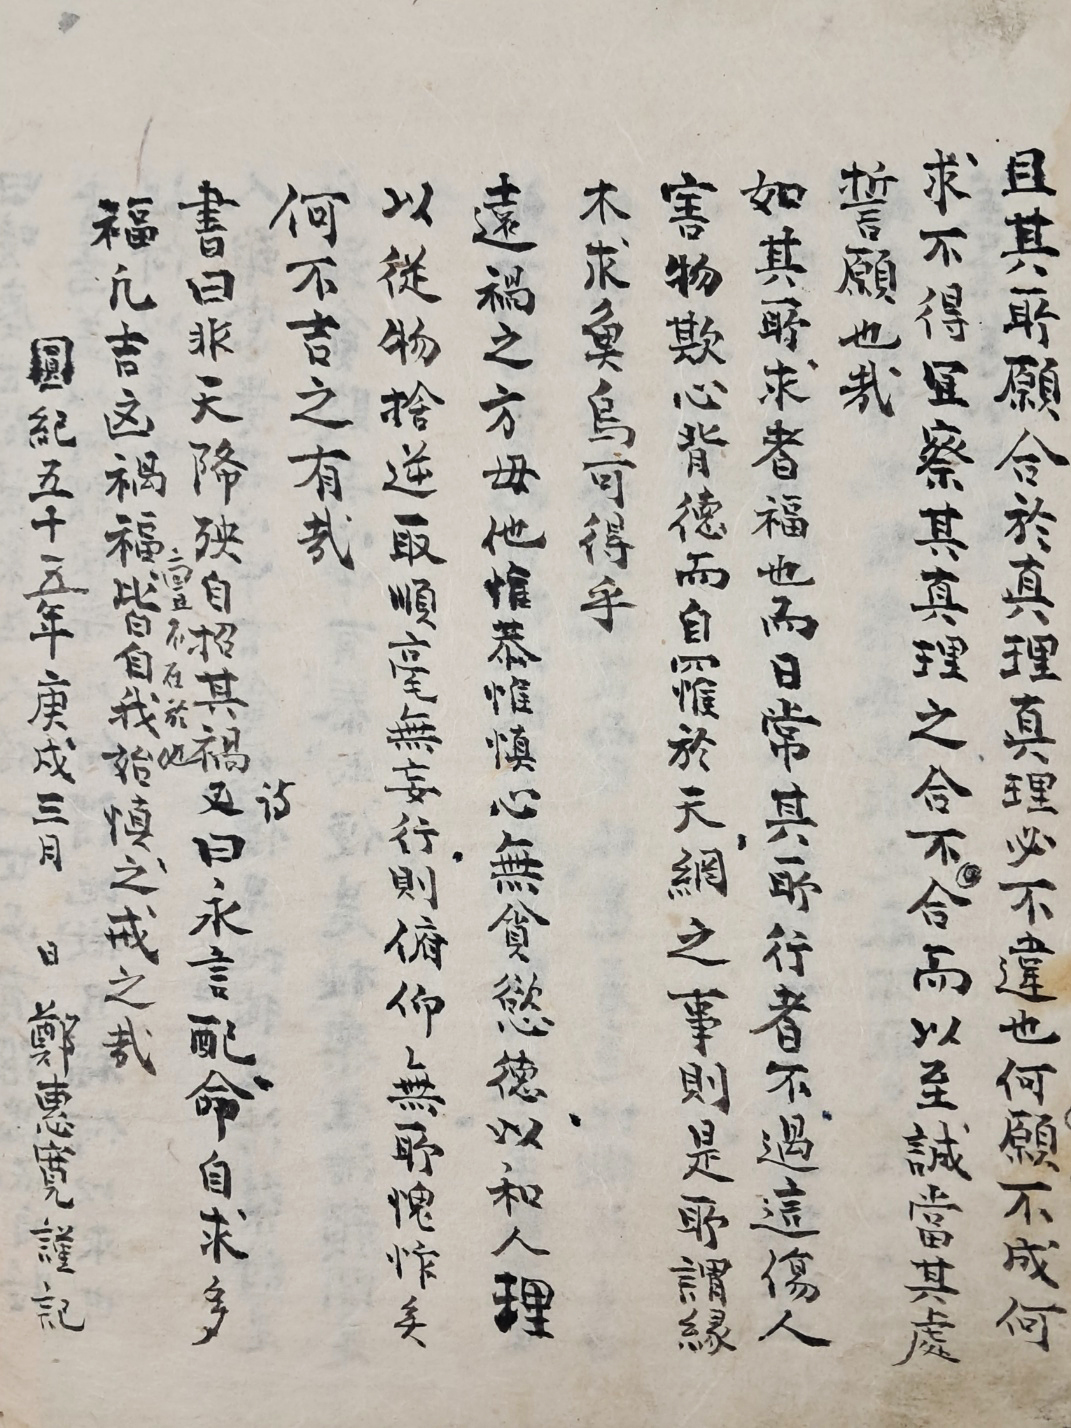 且其所願合於真理真理必不違也何願不成何
求不得宜察其真理之合不合而以至誠當其處
誓願也哉
如其所求者福也而日常其所行者不過這傷人
害物欺心背德而自罹於天網之事則是所謂緣
木求魚烏可得乎
遠禍之方毋他惟恭惟慎心無貪慾德以和人理
以從物捨逆取順毫無妄行則俯仰無所愧怍矣
何不吉之有哉
詩
書曰非天降殃自招其禍又曰永言配命自求多
福凡吉凶禍福皆自我始慎之戒之哉
圓紀五十五年庚戌三月 日 鄭惠寬謹記